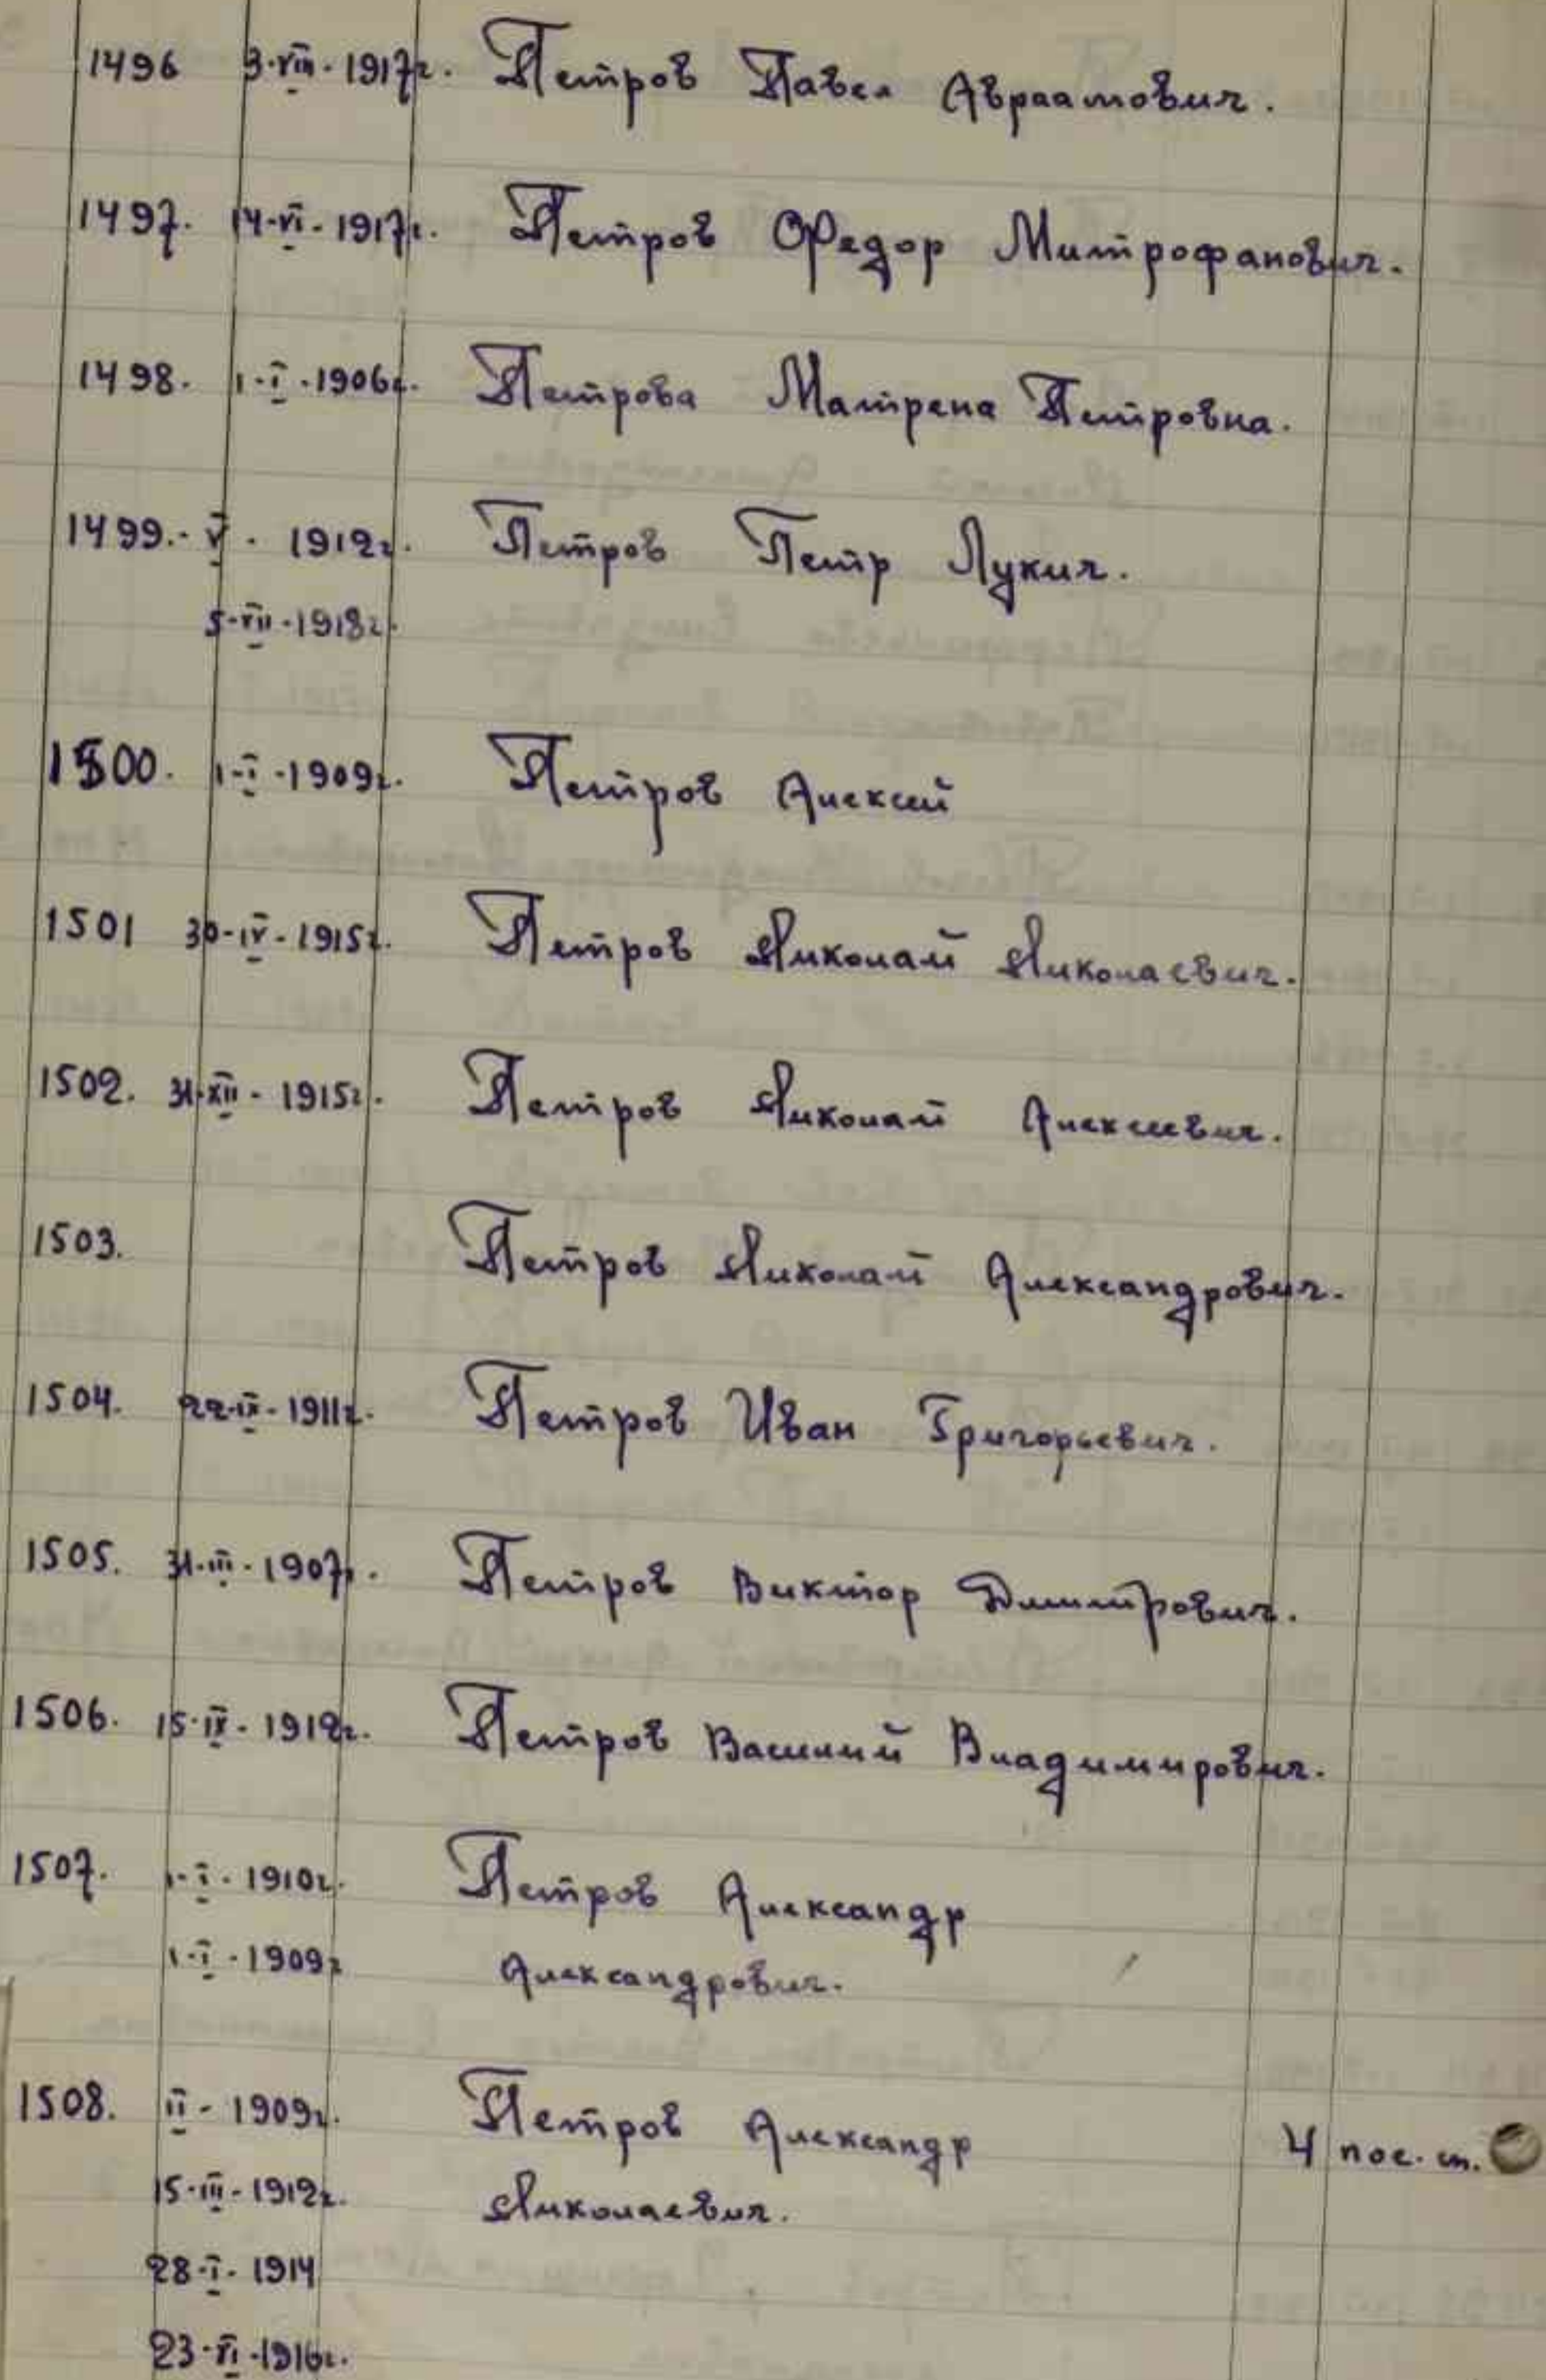 1496 3-VIII-1917г. Петров Павел Авраамович.
1497. 14-VI-1917г. Петров Федор Митрофанович.
1498. 1-I-1906г. Петрова Матрена Петровна.
1499.- V - 1912г. Петров Петр Лукич.
5-VII-1918г.
1500. 1-I-1909г. Петров Алексей
1501 30-IV-1915г. Петров Николай Николаевич.
1502. 31-XII-1915г. Петров Николай Алексеевич.
1503. Петров Николай Александрович.
1504. 22-IX-1911г. Петров Иван Григорьевич.
1505. 31-III-1907г. Петров Виктор Дмитрович.
1506. 15-IX-1912г. Петров Василий Владимирович.
1507. 1-I-1910г. Петров Александр
1-I-1909г Александрович.
1508. II-1909г. Петров Александр 4 пос. ст.
15-III-1912г. Николаевич.
28-I-1914
23-VI-1916г.